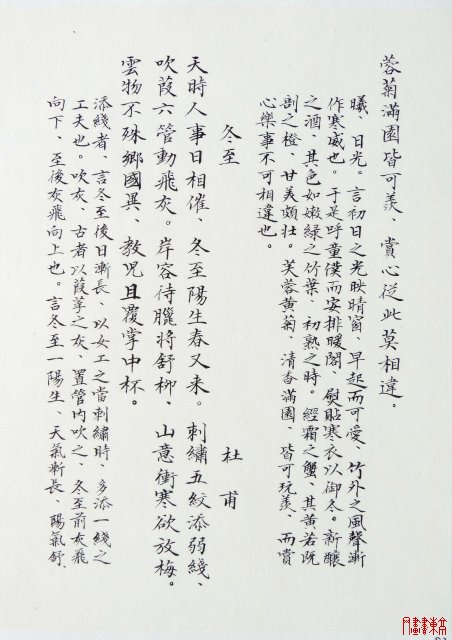 蓉菊滿園皆可羨、賞心從此莫相違。
曦、日光。言初日之光映晴窗、早起而可愛、竹外之風聲漸
作寒威也。于是呼童僕而安排暖閣、熨貼寒衣以御冬。新釀
之酒、其色如嫩綠之竹葉、初熟之時。經霜之蟹、其黃若既
剖之橙、甘美頗壯。芙蓉黃菊、清香滿園、皆可玩羨、而賞
心樂事不可相違也。
冬至　杜甫
天時人事日相催、冬至陽生春又來。刺繡五紋添弱綫、
吹葭六管動飛灰。岸容待臘將舒柳、山意衝寒欲放梅。
雲物不殊鄉國異、教兒且覆掌中杯。
添綫者、言冬至後日漸長、以女工之當刺繡時、多添一綫之
工夫也。吹灰、古者以葭莩之灰、置管內吹之、冬至前灰飛
向下、至後灰飛向上也。言冬至一陽生、天氣漸長、陽氣舒